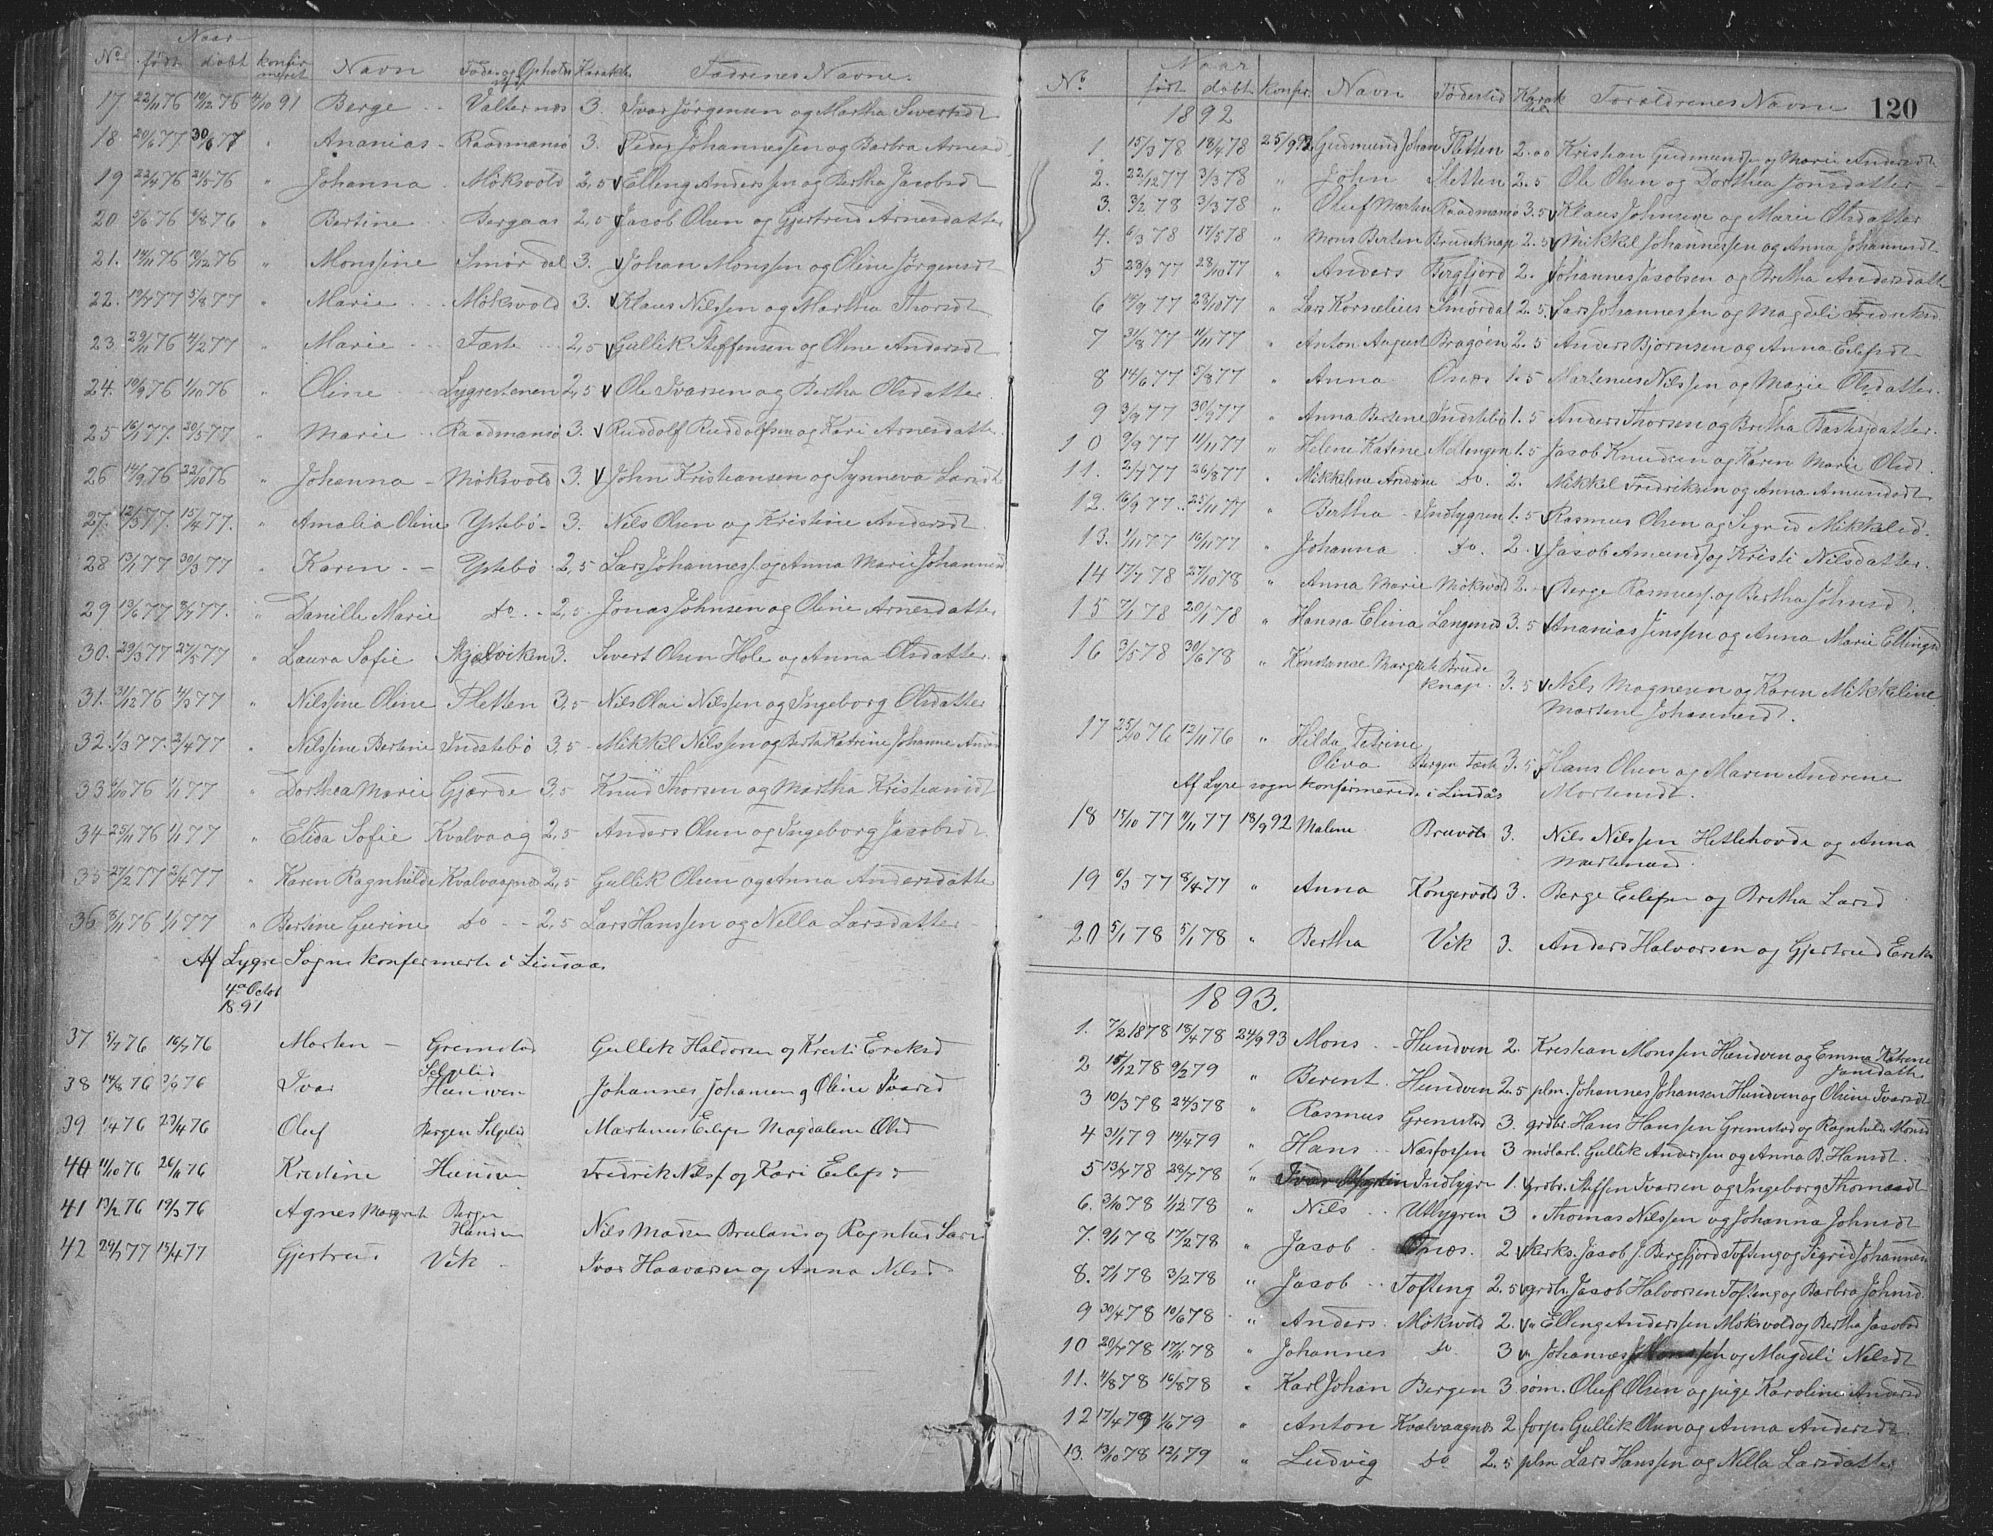 Naar
No født døbt konfirmeret Navn Føde og Opholds Karakt. Forældrenes Navne.
17. 22/11 76 10/12 76 4/10 91 Berge Valternæs 3. Ivar Jørgensen og Martha Sivertsdt
18. 20/6 77 30/6 77 " Ananias Raadmansø 3. Peder Johannessen og Barbra Arnesd
19 22/4 76 21/5 76 " Johanna Möksvold 2,5 V Elleng Anderssen og Bertha Jacobsd
20 5/6 76 6/8 76 " Bertine Bergaas 2,5 V Jacob Olsen og Gjertrud Arnesdatter
21. 14/11 76 10/12 76 " Monssine Smør dal 3. V Johan Monssen og Oline Jørgensdt
22. 19/7 77 5/8 77 " Marie Möksvold 3. V Klaus Nilssen og Martha Thorsdt
23. 29/11 76 4/2 77 Marie Fæste 2,5 V Gullik Steffensen og Oline Andersdt
24. 10/9 76 1/10 76 " Oline Lygrestenen 2,5 V Ole Ivarsen og Bertha Olsdatter.
25 16/1 77. 20/5 77 " Marie Raadmansø 3. V Ruddolf Ruddolfsen og Kari Arnesdatter
26 14/9 76 22/10 76 " Johanna Möksvold 3. V John Kristiansen og Synneva Larsdt
27. 12/3 77. 15/4 77. " Amalia Oline Ystebö 3. Nils Olsen og Kristine Andersdt.
28 13/1 77 30/3 77 " Karen Ystebö 2,5 Lars Johanness. og Anna Marie Johannesd
29 13/6 77 8/7 77. " Danille Marie do 2,5 Jonas Johnsen og Oline Arnesdatter
30. 29/3 77 27/5 77 " Laura Sofie Skjelviken 3. Sivert Olsen Hole og Anna Olsdatter.
31. 31/12 76 4/3 77 " Nilssine Oline Fletten 3,5 Nils Olai Nilssen og Ingeborg Olsdatter
32. 1/3 77. 2/4 77 " Nilssine Bertine Indstebö 3,5 Mikkel Nilssen og Berta Katrine Johanne Andrd
33 6/10 76 1/1 77 " Dorthea Marie Gjærde 3,5 Knud Thorsen og Martha Kristiansdt
34 25/11 76 1/1 77 " Elida Sofie Kvalvaag 2,5 Anders Olsen og Ingeborg Jacobsdt.
35 27/2 77 2/4 77 " Karen Ragnhilde Kvalvaagnæs 2,5 Gullik Olsen og Anna Andersdatter
36 3/11 76 1/1 77 " Bertine Gurine do 2,5 Lars Hanssen og Nella Larsdatter
Af Lygre Sogn konfirmerte i Lindaas
4de Octob
1891
37 5/7 76 16/7 76 Morten Gremstad Gullik Haldorsen og Kristi Eriksd
38 14/8 76 3/9 76 Ivar Selgelid Hunven Johannes Johansen og Oline Ivarsd
39 1/4 76 23/4 76 Oluf Bergen Selgelid Martinus Eilefsen Magdalene Olsd
40 11/10 76 26/11 76 Kristine Hundven Fredrik Nilss og Kari Eilefsd
41 13/2 76 19/3 76 Agnes Margrete Bergen Hunden Nils Madsen Bruland og Ragnhild Larsd
42 29/1 77 15/4 77 Gjertrud Vik Ivar Haavarsen og Anna Nilsd
120
Naar
No. født døbt konfir. Navn Fødested Karakter Forældrenes Navne
1892
1. 15/3 78 18/4 78 25/9 92 Gudmund Johan Fletten 2.00 Kristian Gudmunds. og Marie Andersdt
2. 22/12 77 3/3 78 " John Sletten 2.5 Ole Olsen og Dorthea Jonsdatter
3. 3/2 78 3/3 78 " Oluf Martin Raadmansø 3.5 V Klaus Johnsen og Marie Olsdatter
4. 6/3 78 17/3 78 " Mons Berten Brudeknap 2.5 V Mikkel Johannessen og Anna Johannesdt
5 23/9 77 28/10 77 " Anders Bergfjord 2. V Johannes Jacobsen og Bretha Andersdatter
6 14/9 77 23/10 77 " Lars Kornelius Smørdal 2.5. V Lars Johannessen og Magdeli Fredriksd
7 31/8 77 11/11 77 " Anton August Bragøen 2.5 Anders Bjørnsen og Anna Eilefsdt
8 14/6 77 5/8 77 " Anna Onæs 1.5 Martenus Nilssen og Marie Olsdatter.
9 3/9 77 30/9 77 " Anna Bertine Indstebö 1.5 Anders Thorsen og Bretha Bastesdatter.
10 9/9 77 11/11 77 " Helene Katrine Mellengen 1.5 Jacob Knudsen og Karen Marie Olsdt.
11. 2/7 77 26/8 77 " Mikkeline Andrine do. 2. Mikkel Fredriksen og Anna Amundsdt
12. 16/9 77. 25/11 77 " Bertha Indlygren 1.5 V Rasmus Olsen og Sigrid Mikkelsd.
13. 1/11 77 16/11 77 " Johanna do. 2. V Jacob Amunds. og Kristi Nilsdatter.
14 17/7 78 27/10 78 " Anna Marie Möksvold 2. V Berge Rasmuss. og Bertha Johnsd.
15 7/1 78 20/1 78 " Hanna Elina Langenæs 3.5 V Ananias Jenssen og Anna Marie Ellingsd
16 3/5 78 30/6 78 " Konstanse Margrete Brude
knap. 3.5 V Nils Magnesen og Karen Mikkeline
Martine Johannesdt.
17 25/10 76 12/11 76 " Hilda Petrine
Oliva Bergen Fæste 3.5 V Hans Olsen og Maren Andrine
Mortensdt.
Af Lygre sogn konfirmered i Lindås
18 15/10 77 11/11 77 18/9 92 Malene Bruvold 3. Nils Nilssen Hetlehovde og Anna
Martensd.
19 6/3 77 8/4 77 " Anna Kongsvold 3. Berge Eilefsen og Bretha Larsd
20 5/1 78 5/1 78 " Bertha Vik 3. Anders Halvorsen og Gjertrud Eriks
1893.
1. 7/2 1878 18/4 78 24/9 93 Mons Hundven 2. Kristian Monssen Hundven og Emma Katrine
Jansdatter
2 15/12 78 9/2 79 " Berent Hundven 2.5 plm. Johannes Johansen Hundven og Oline Ivarsdt
3 10/3 78 24/3 78 " Rasmus Gremstad 3. grdbr. Hans Hanssen Gremstad og Ragnhilde Monsd
4 31/1 79 14/4 79 " Hans Næsfossen 3 mölarb. Gullik Anderssen og Anna B. Hansdt.
5 13/4 78 28/4 78 " Ivar Indlygre 1. V grdbr. Steffen Ivarsen og Ingeborg Thomasdt
6. 3/10 78 1/12 78 " Nils Utlygren 3 " Thomas Nilssen og Johanna Johnsdt
7. 9/1 78 17/2 78 " Jacob Onæs. 2 V kerks. Jacob J. Bergfjord Tofteng og Sigrid Johannesd
8. 7/1 78 3/2 78 " Jacob Tofteng 2.5 V grdbr. Jacob Halvorsen Tofteng og Barbra Johnsd.
9 30/4 78 10/6 78 " Anders Mökvold 2. V " Elleng Anderssen Mökvold og Bertha Jacobsd
10 20/7 78 17/11 78 " Johannes do. 3 V " Johannes Monssen og Magdeli Nilsdt
11. 4/8 78 16/8 78 " Karl Johan Bergen 3 søm. Oluf Olsen og pige Karoline Andersd
12 17/4 79 1/6 79 " Anton Kvalvaagnæs 2 forp. Gullik Olsen og Anna Andersdt.
13. 13/10 78 12/1 79 " Ludvig do 2.5 plm Lars Hanssen og Nella Larsdatter